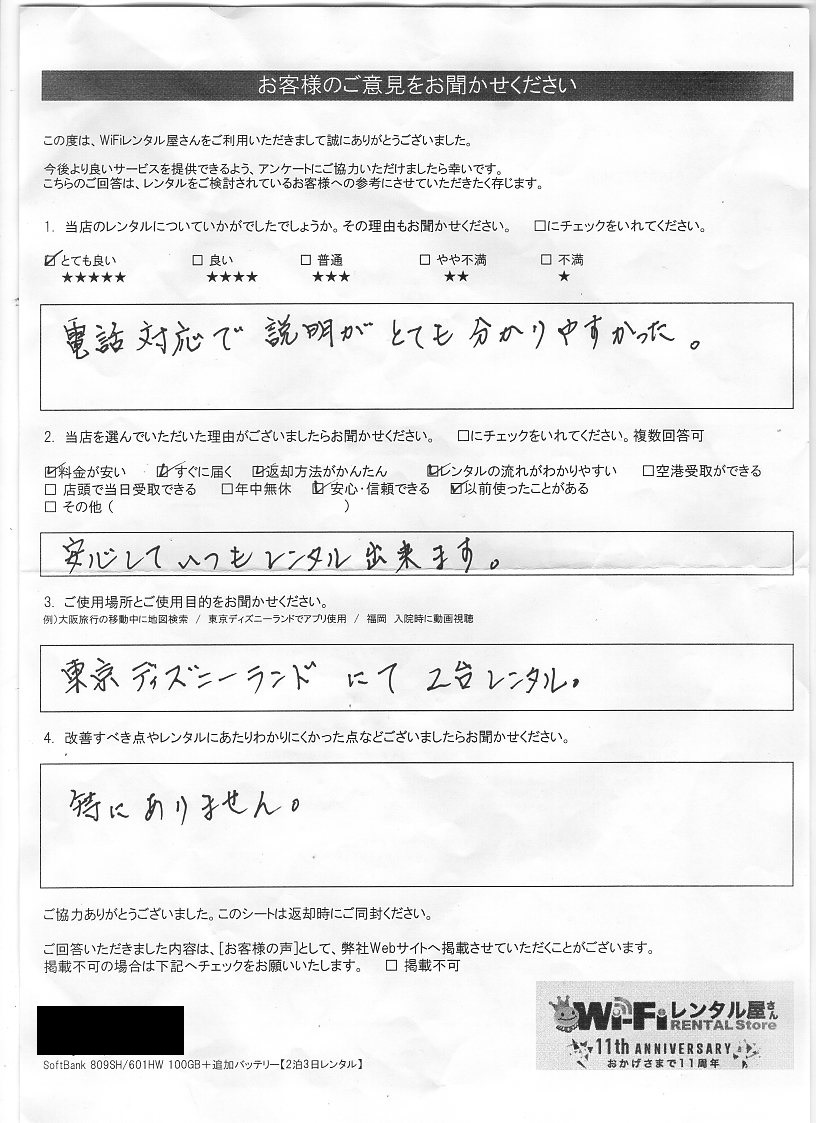 お客様のご意見をお聞かせください
この度は、WiFiレンタル屋さんをご利用いただきまして誠にありがとうございました。
今後より良いサービスを提供できるよう、アンケートにご協力いただけましたら幸いです。
こちらのご回答は、レンタルをご検討されているお客様への参考にさせていただきたく存じます。
1. 当店のレンタルについていかがでしたでしょうか。その理由もお聞かせください。 □にチェックをいれてください。
☑ とても良い □ 良い □ 普通 □ やや不満 □ 不満
★★★★★ ★★★★ ★★★ ★★ ★
電話対応で説明がとても分かりやすかった。
2. 当店を選んでいただいた理由がございましたらお聞かせください。 □にチェックをいれてください。複数回答可
☑料金が安い ☑すぐに届く ☑返却方法がかんたん ☑レンタルの流れがわかりやすい □空港受取ができる
□ 店頭で当日受取できる □年中無休 ☑ 安心・信頼できる ☑以前使ったことがある
□ その他 ( )
安心していつもレンタル出来ます。
3. ご使用場所とご使用目的をお聞かせください。
例)大阪旅行の移動中に地図検索 / 東京ディズニーランドでアプリ使用 / 福岡 入院時に動画視聴
東京ディズニーランドにて2台レンタル。
4. 改善すべき点やレンタルにあたりわかりにくかった点などございましたらお聞かせください。
特にありません。
ご協力ありがとうございました。このシートは返却時にご同封ください。
ご回答いただきました内容は、[お客様の声]として、弊社Webサイトへ掲載させていただくことがございます。
掲載不可の場合は下記へチェックをお願いいたします。 □ 掲載不可
Wi-Fiレンタル屋さん
RENTAL Store
11th ANNIVERSARY
おかげさまで11周年
SoftBank 809SH/601HW 100GB＋追加バッテリー【2泊3日レンタル】